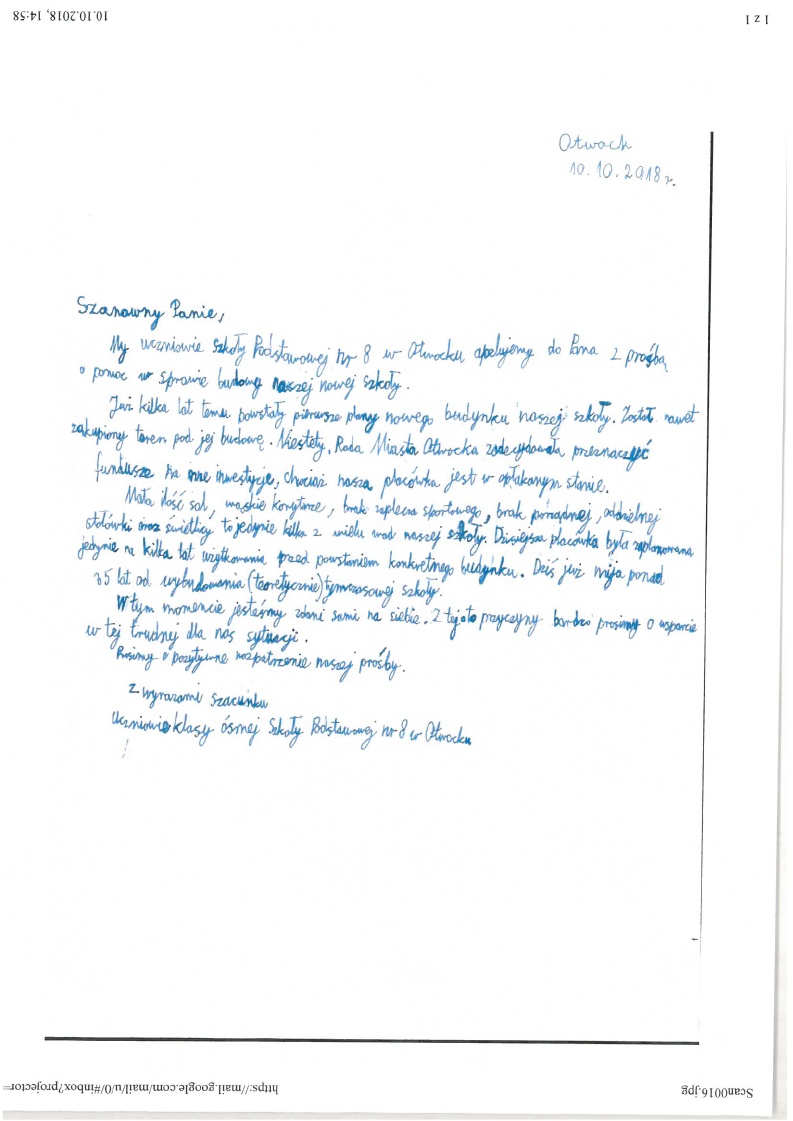 10.10.2018, 14:58
1 z 1
Otwock
10.10.2018 r.
Szanowny Panie,
My uczniowie Szkoły Podstawowej nr 8 w Otwocku apelujemy do Pana z prośbą
o pomoc w sprawie budowy naszej nowej szkoły.
Już kilka lat temu powstały pierwsze plany nowego budynku naszej szkoły. Został nawet
zakupiony teren pod jej budowę. Niestety, Rada Miasta Otwocka zadecydowała przeznaczyć
fundusze na inne inwestycje, chociaż nasza placówka jest w opłakanym stanie.
Mała ilość sal, wąskie korytarze, brak zaplecza sportowego, brak porządnej, oddzielnej
stołówki oraz świetlicy to jedynie kilka z wielu wad naszej szkoły. Dzisiejsza placówka była zaplanowana
jedynie na kilka lat użytkowania przed powstaniem konkretnego budynku. Dziś już mija ponad
35 lat od wybudowania (teoretycznie) tymczasowej szkoły.
W tym momencie jesteśmy zdani sami na siebie. Z tej oto przyczyny bardzo prosimy o wsparcie
w tej trudnej dla nas sytuacji.
Prosimy o pozytywne rozpatrzenie naszej prośby.
Z wyrazami szacunku
Uczniowie klasy ósmej Szkoły Podstawowej nr 8 w Otwocku
https://mail.google.com/mail/u/0/#inbox?projector=
Scan0016.jpg